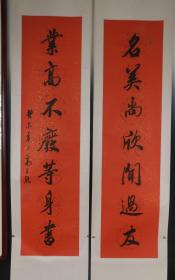 名美尚欣聞過友
業高不廢等身書